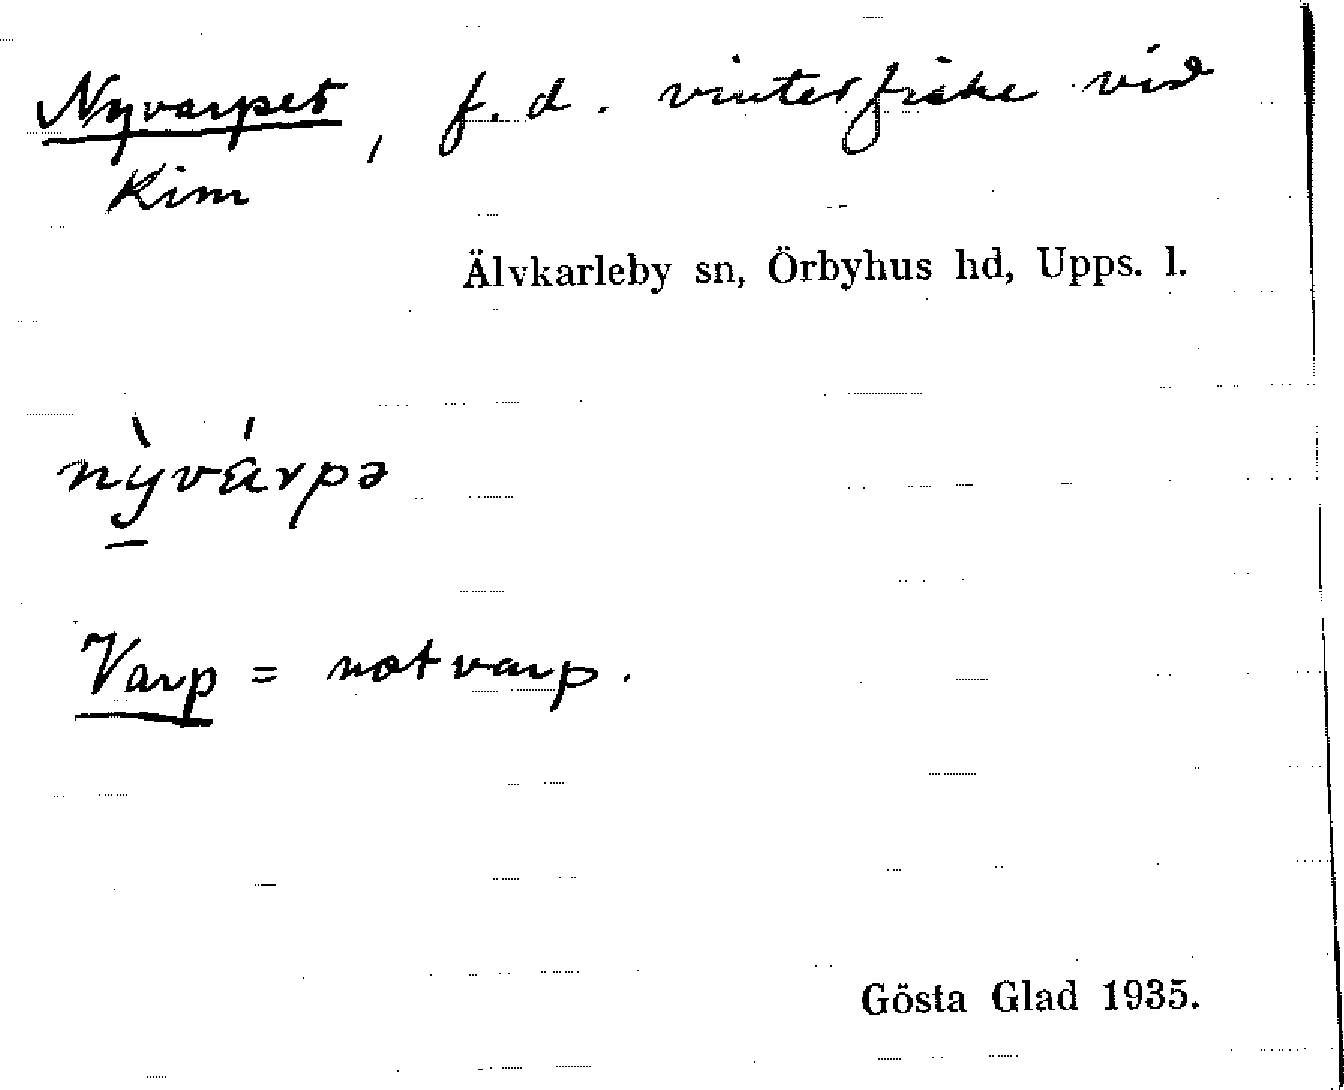 Nyvarpet, f.d. vinterfiske vid
Kim
Älvkarleby sn, Örbyhus hd, Upps. l.
nỳvárpə
Varp = notvarp.
Gösta Glad 1935.